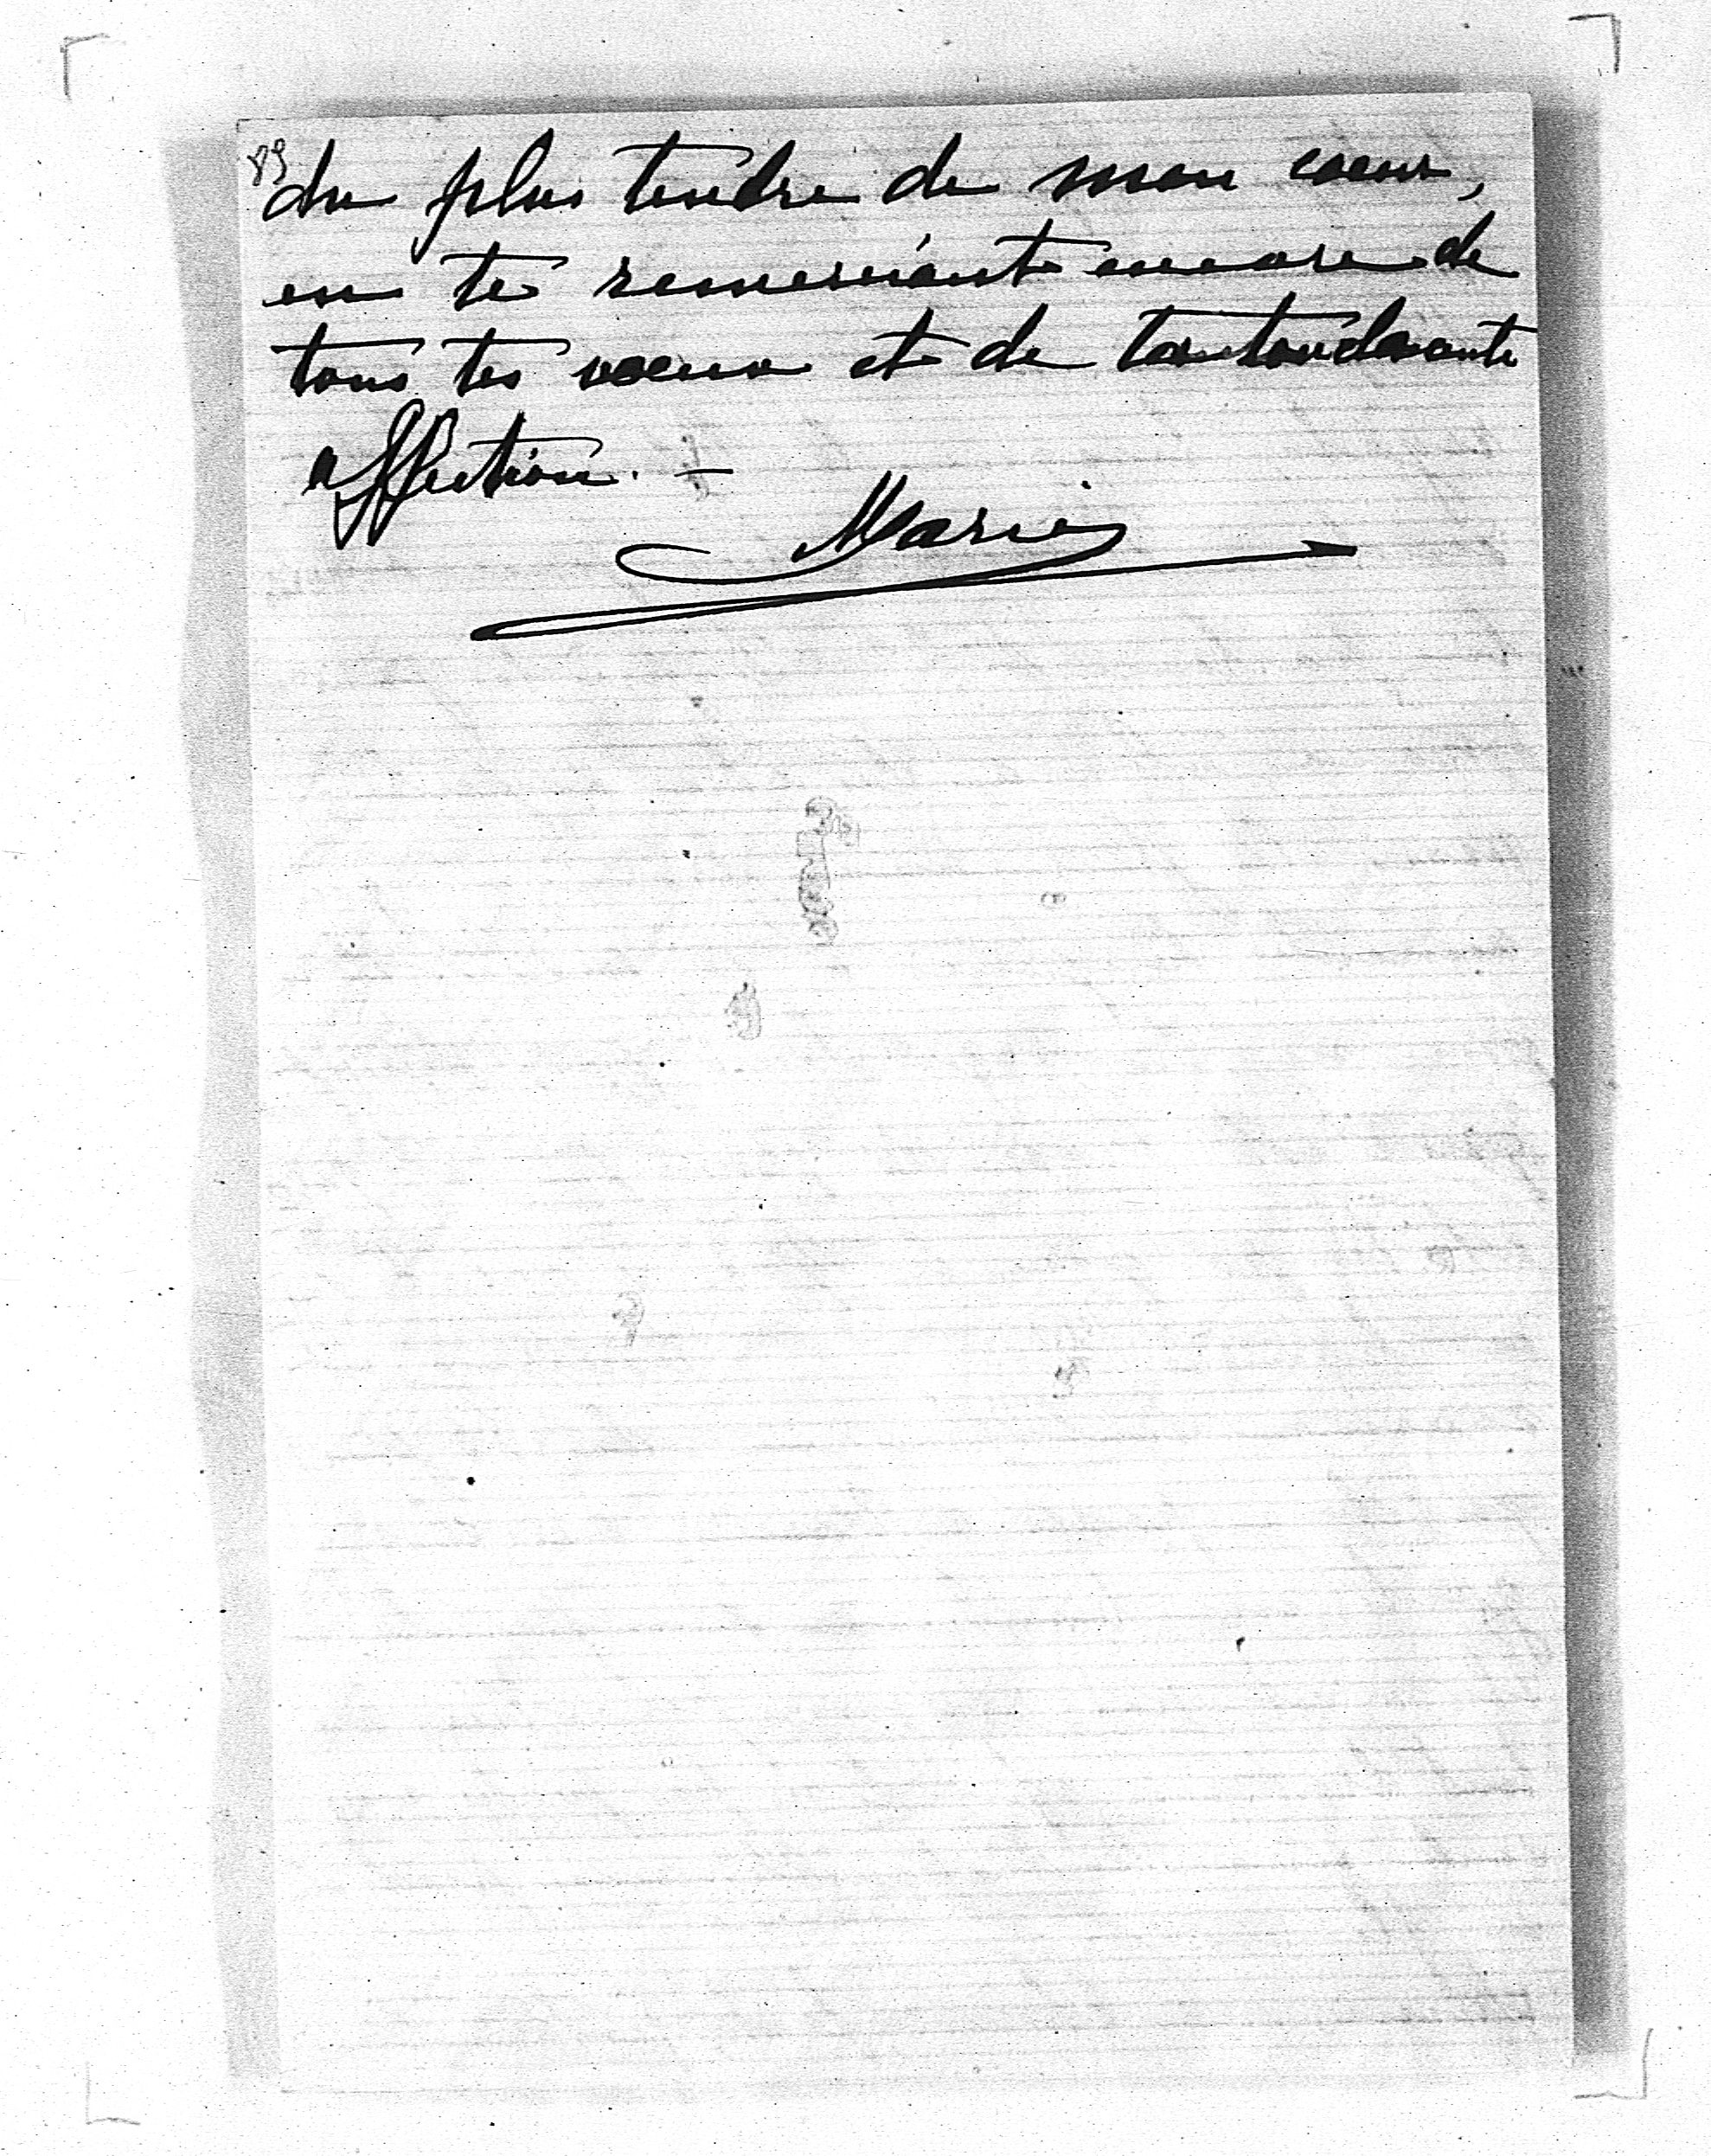 89
du plus tendre de mon coeur,
en te remerciant encore de
tous tes voeux et de ta
affection. —
Marie